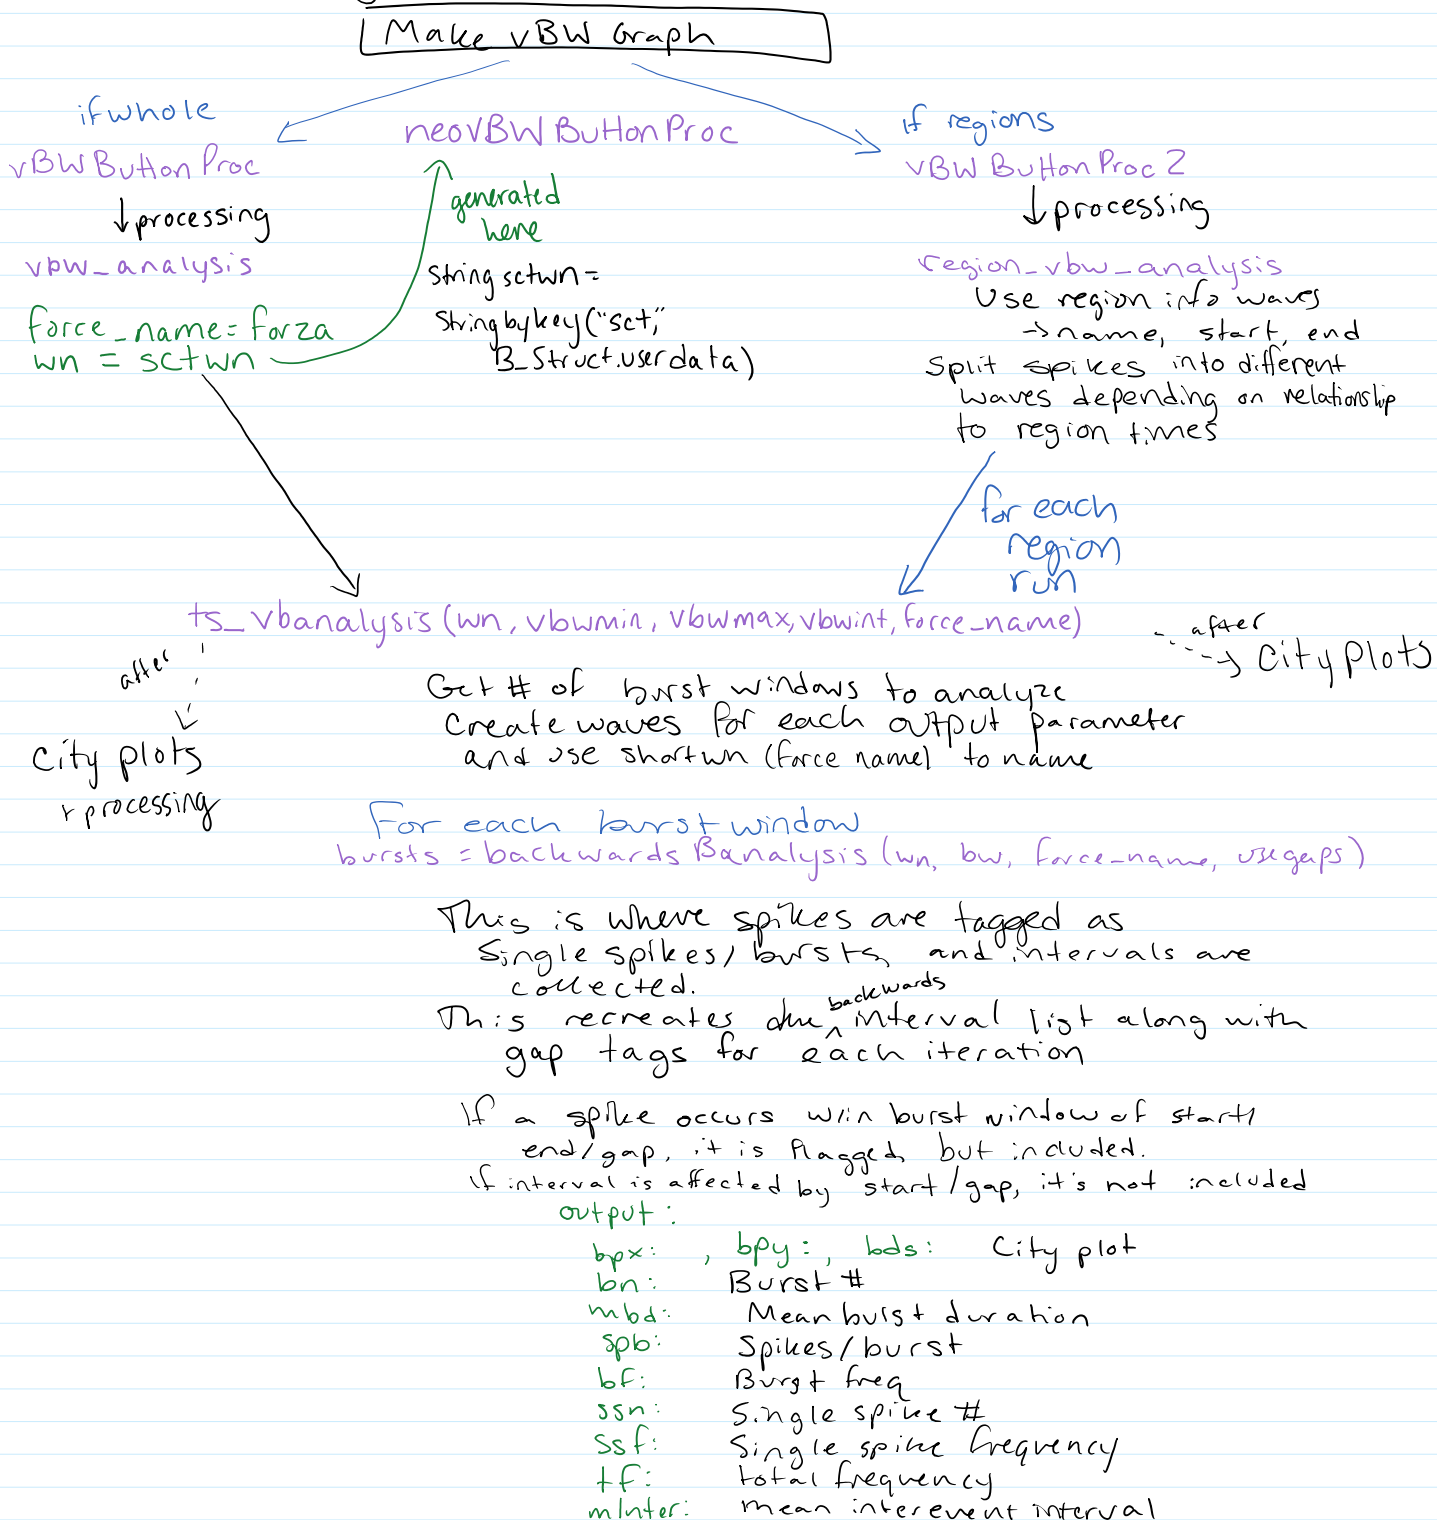 Make vBW Graph
if whole
vBWButtonProc
↓processing
vbw_analysis
force_name=forza
wn = sctwn
neovBWButtonProc
generated
here
String sctwn=
Stringbykey("sct,"
B_Struct.userdata)
if regions
vBWButtonProc2
↓processing
region_vbw_analysis
Use region info waves
→name, start, end
Split spikes into different
waves depending on relationship
to region times
for each
region
run
ts_vbanalysis(wn, vbwmin, vbwmax, vbwint, force_name)
after
City plots
after
City plots
+ processing
Get # of burst windows to analyze
Create waves for each output parameter
and use shortwn (force name) to name
For each burst window
bursts = backwardsBanalysis(wn, bw, force_name, usegaps)
This is where spikes are tagged as
Single spikes/bursts, and intervals are
collected.
This recreates the backwards interval list along with
gap tags for each iteration
If a spike occurs w/in burst window of start/
end/gap, it is flagged, but included.
If interval is affected by start/gap, it's not included
output:
bpx: , bpy:, bds: City plot
bn: Burst #
mbd: Mean burst duration
spb: Spikes/burst
bf: Burst freq
ssn: Single spike #
ssf: Single spike frequency
tf: total frequency
mInter: mean interevent interval